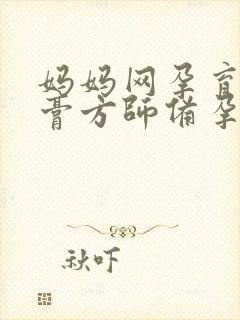 妈妈网孕育
膏方師俻孕
秋吓